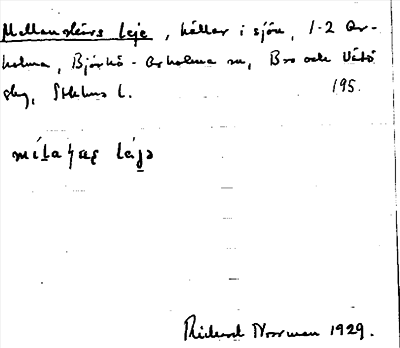 Mellanskärs leje, hällar i sjön, 1-2 Ar-
holma, Björkö-Arholma sn, Bro och Vätö
skg, Sthlms l. 195.
Rickard Norman 1929.